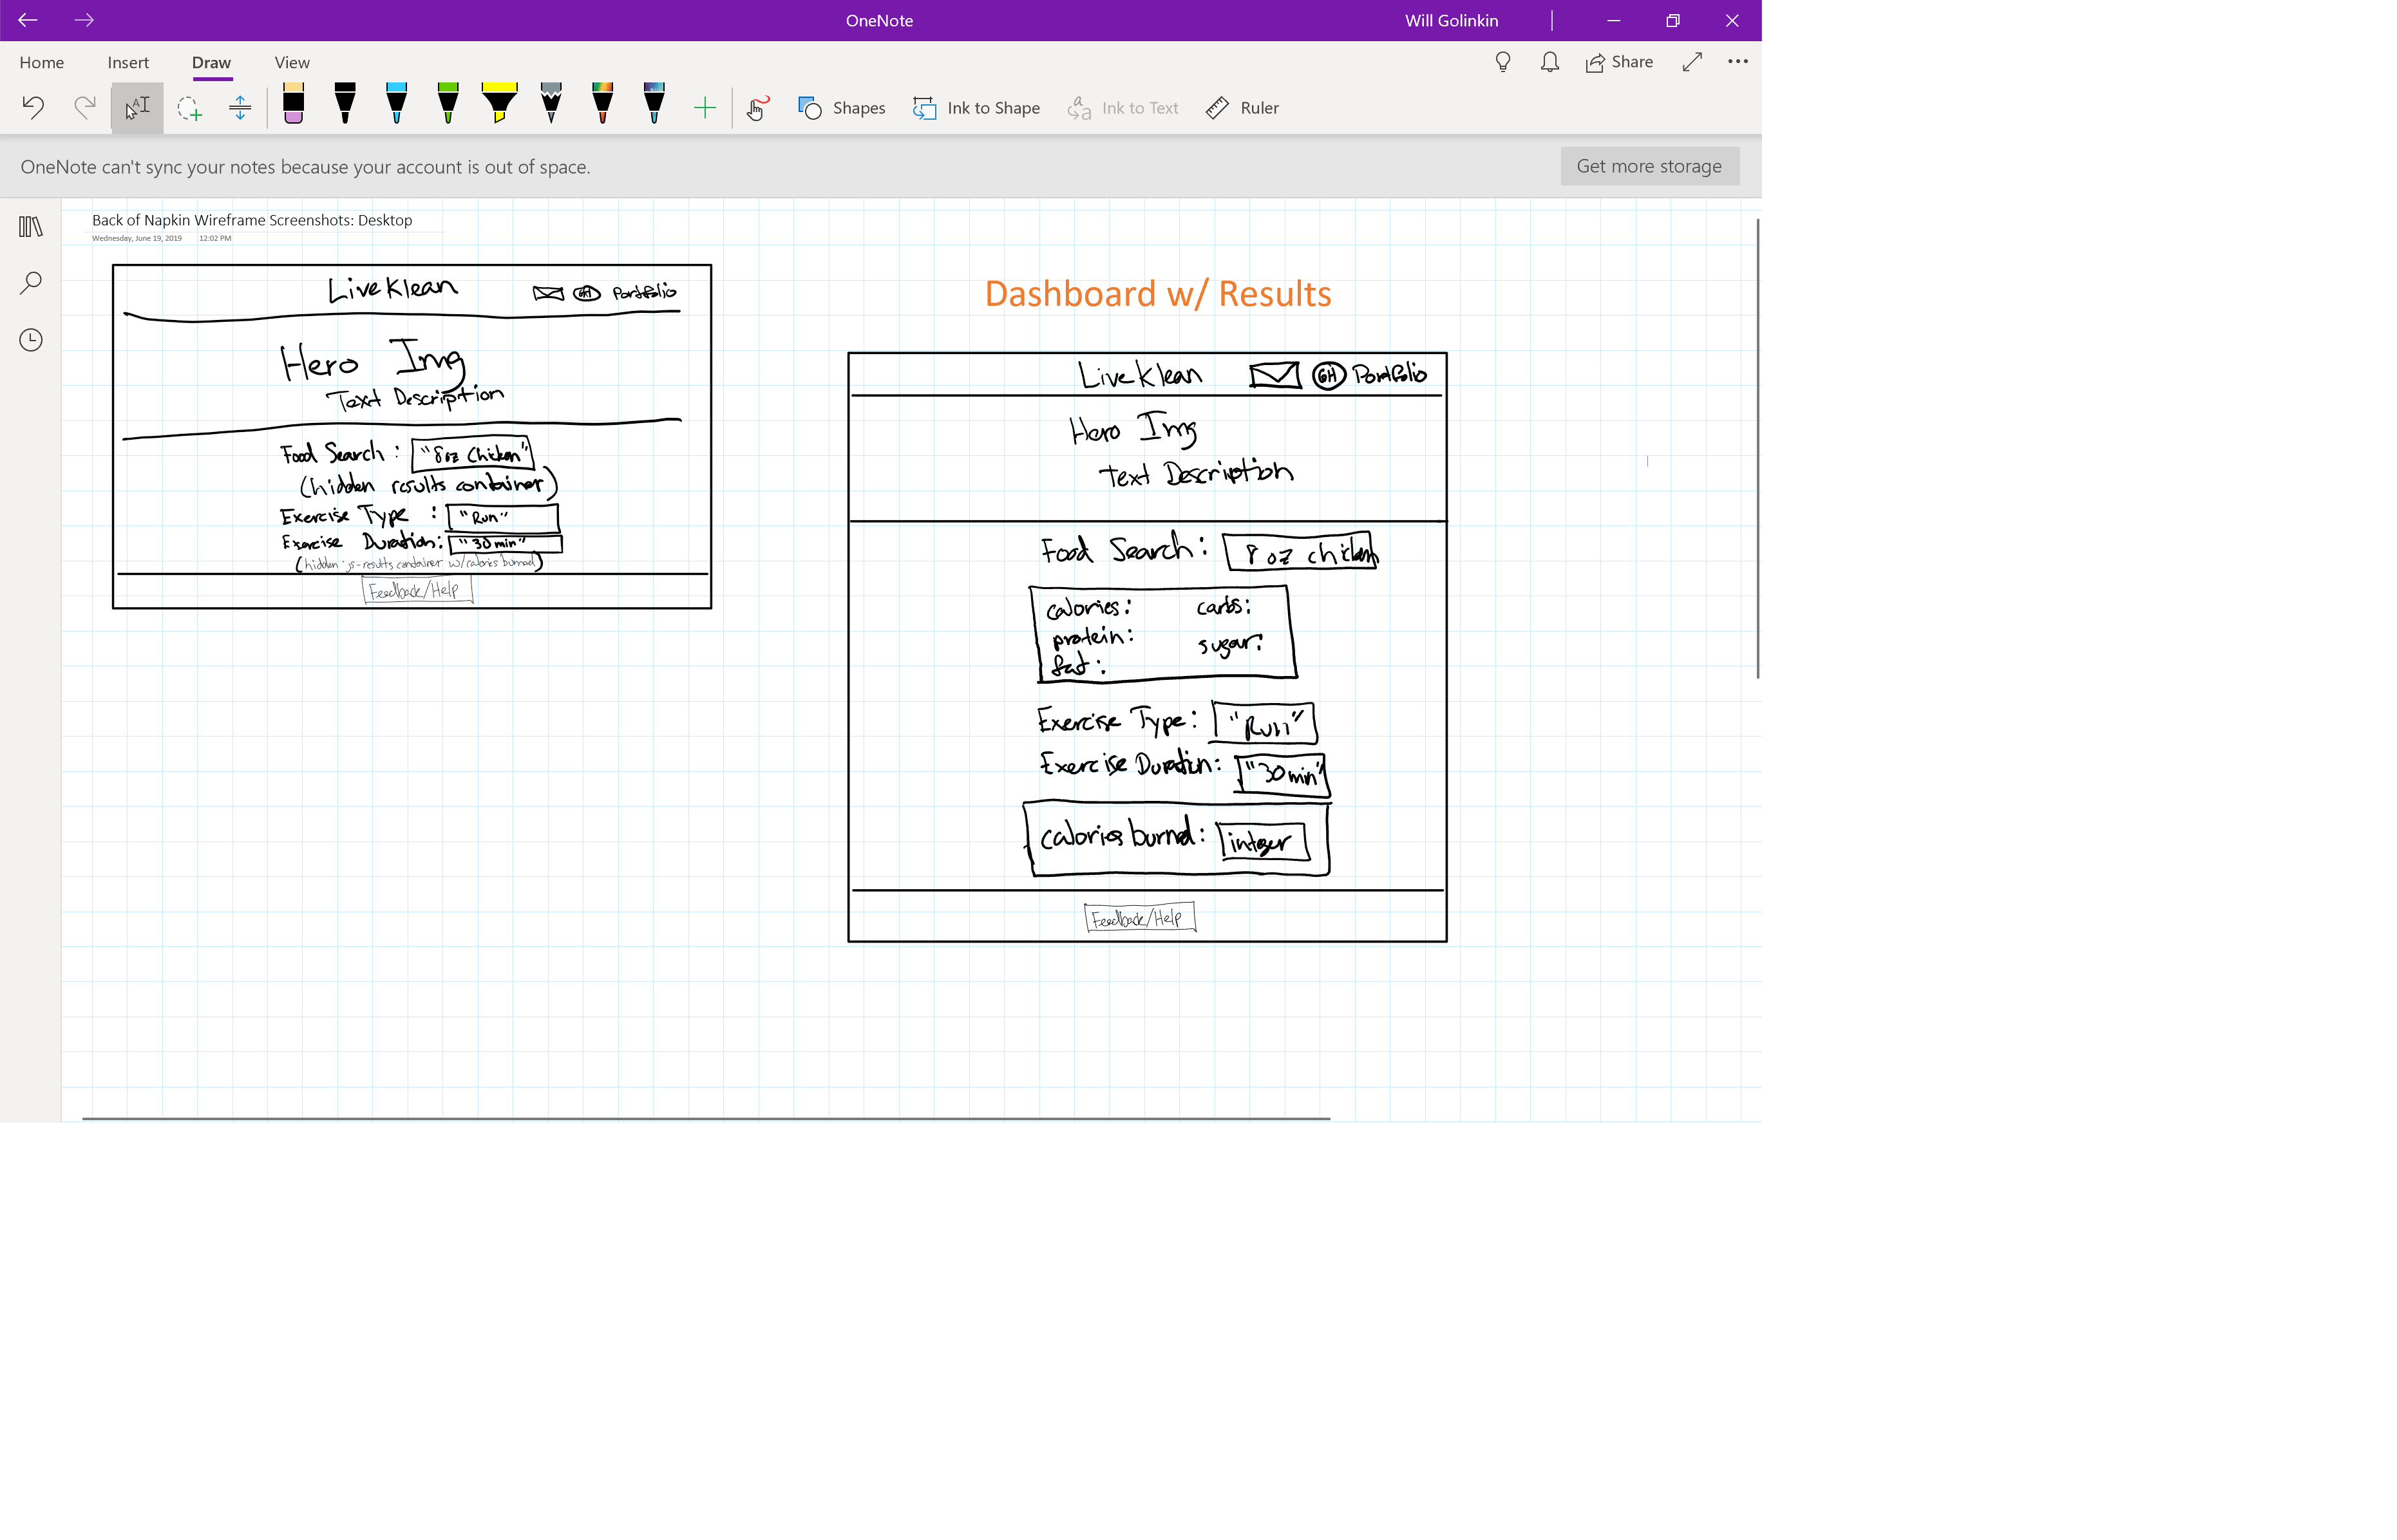 OneNote
Will Golinkin
Home Insert Draw View
Share
Shapes Ink to Shape Ink to Text Ruler
OneNote can't sync your notes because your account is out of space.
Get more storage
Back of Napkin Wireframe Screenshots: Desktop
Wednesday, June 19, 2019 12:02 PM
LiveKlean GH Portfolio
Hero Img
Text Description
Food Search: "8oz Chicken"
(hidden results container)
Exercise Type : "Run"
Exercise Duration: "30 min"
(hidden js-results container w/calories burned)
Feedback/Help
Dashboard w/ Results
LiveKlean GH Portfolio
Hero Img
Text Description
Food Search: 8 oz chicken
calories: carbs:
protein: sugar:
fat:
Exercise Type: "Run"
Exercise Duration: "30min"
calories burned: integer
Feedback/Help